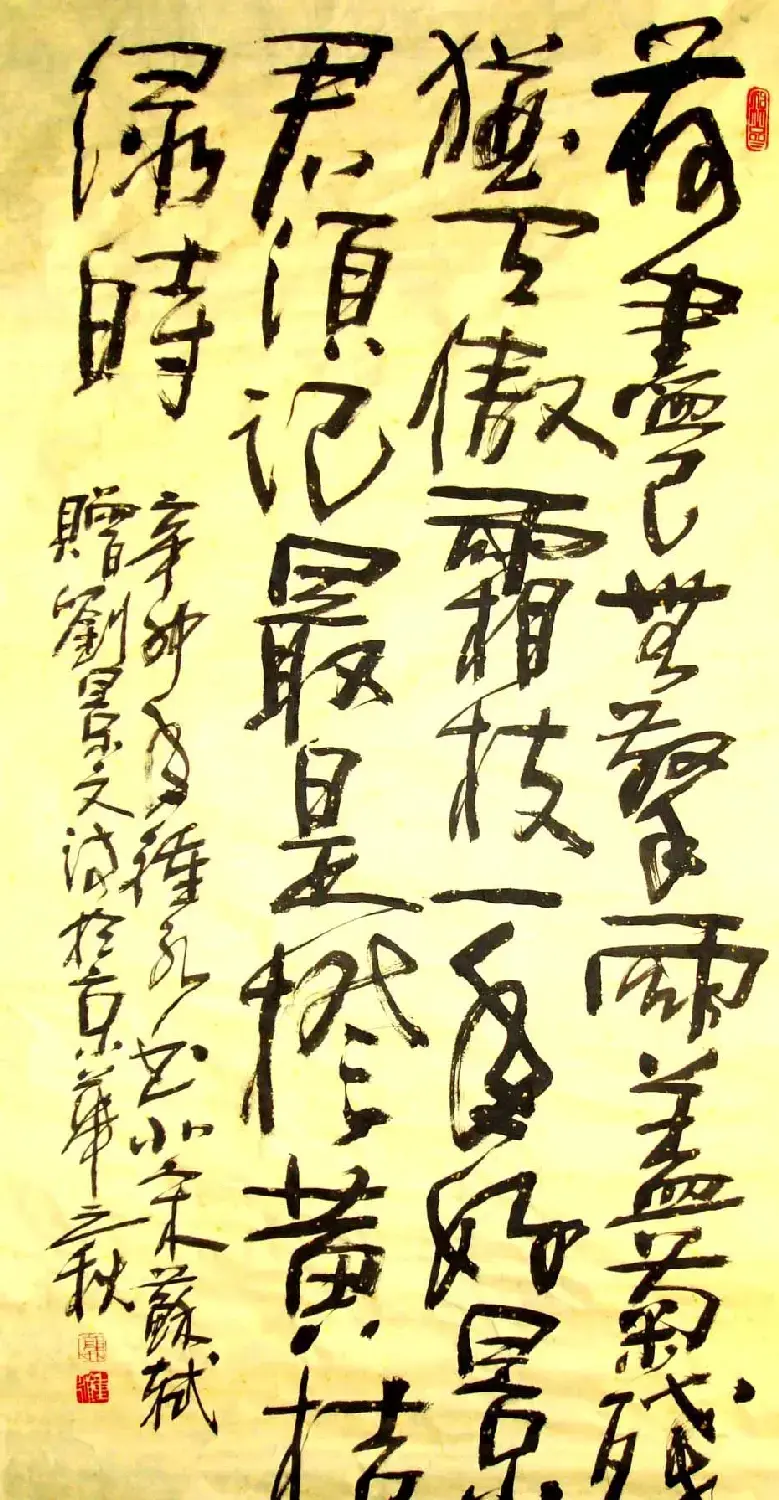 荷盡已無擎雨蓋菊殘
猶有傲霜枝一年好景
君須记最是橙黄桔
绿時
辛卯年书北宋蘇軾
贈劉景文詩於京華之秋